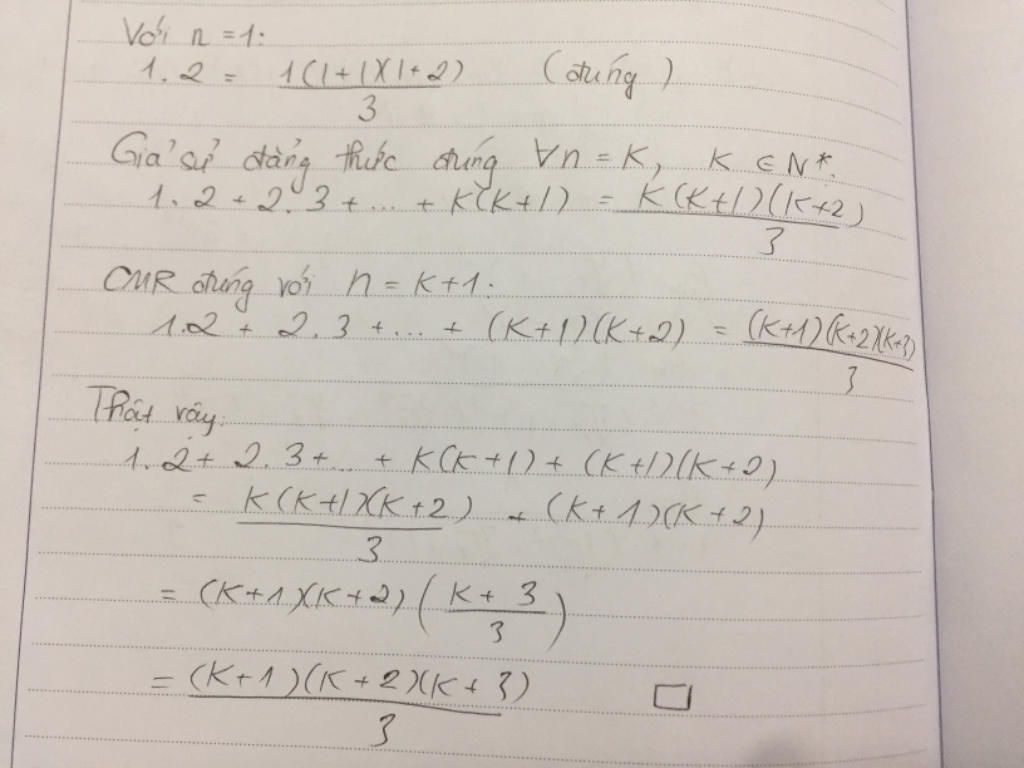 Với n = 1:
1.2 = 1(1+1)(1+2)/3 (đúng)
Giả sử đẳng thức đúng ∀n = K, K ∈ N*.
1.2 + 2.3 + ... + K(K+1) = K(K+1)(K+2)/3
CMR đúng với n = K+1:
1.2 + 2.3 + ... + (K+1)(K+2) = (K+1)(K+2)(K+3)/3
Thật vậy:
1.2 + 2.3 + ... + K(K+1) + (K+1)(K+2)
= K(K+1)(K+2)/3 + (K+1)(K+2)
= (K+1)(K+2)((K+3)/3)
= (K+1)(K+2)(K+3)/3 □